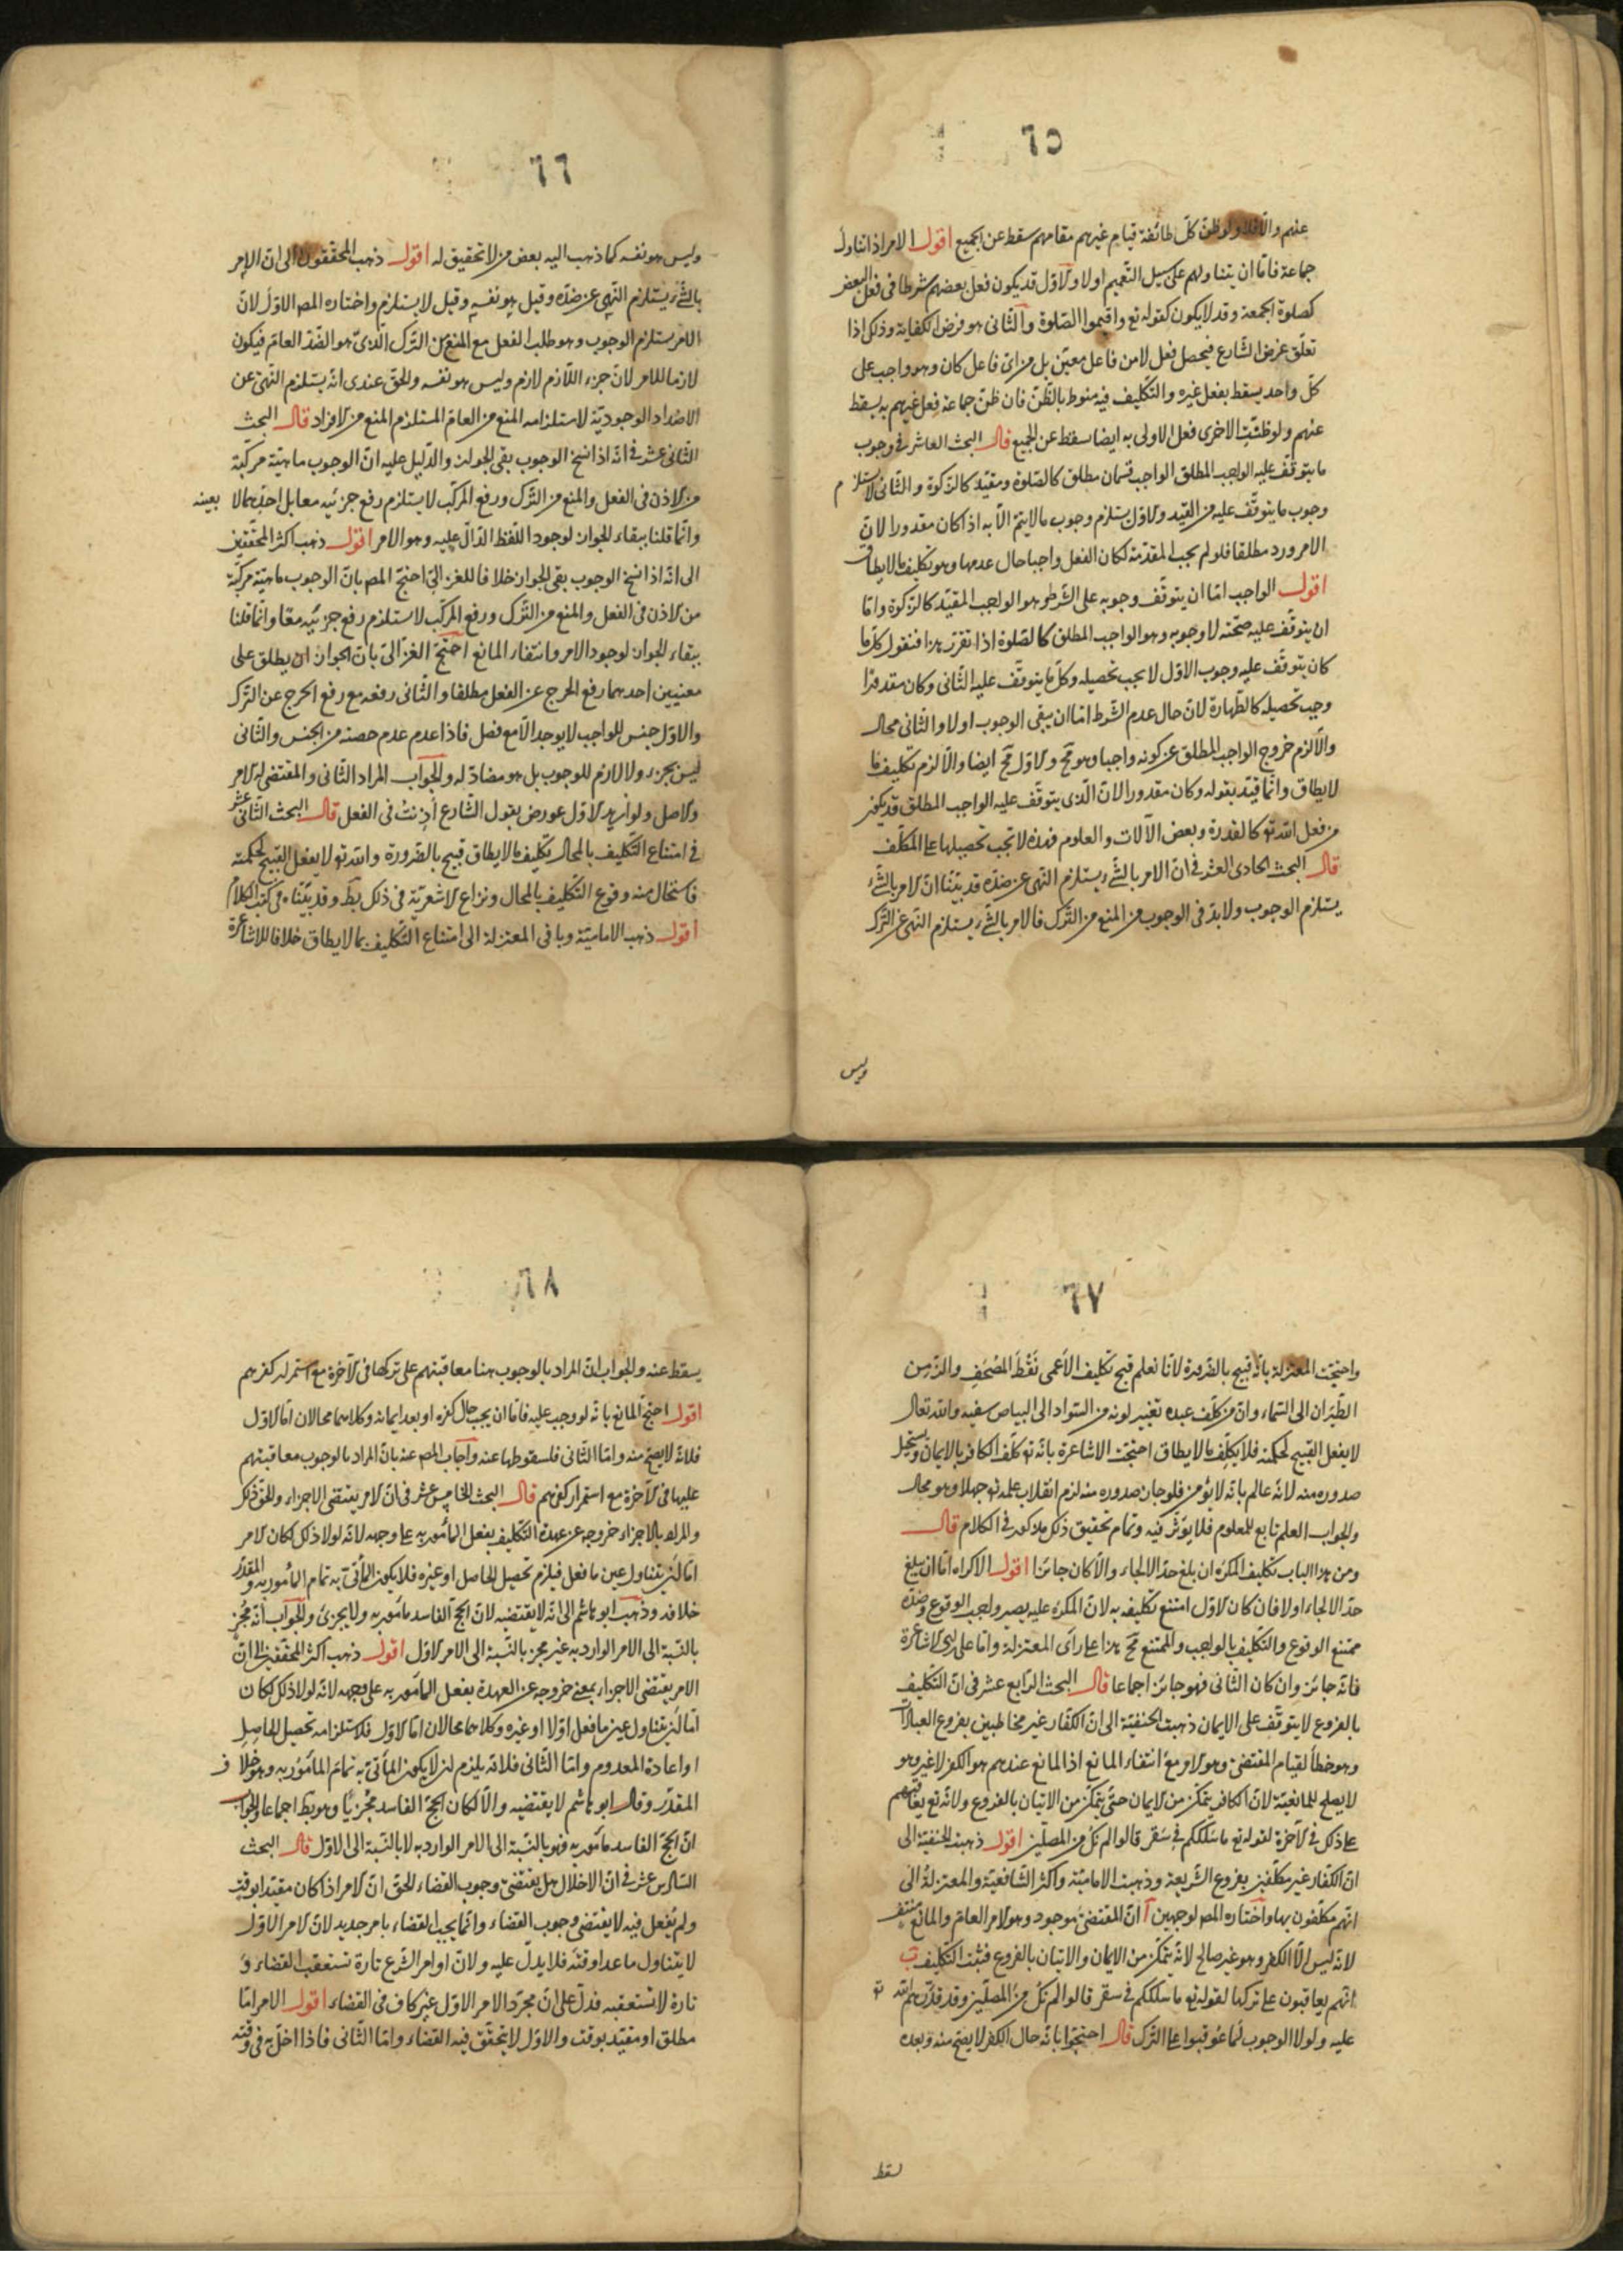 ٦٥
عنهم والا فلا ولو ظنّ كلّ طائفة قيام غيرهم مقامهم سقط عن الجميع اقول الامر اذا تناول
جماعة فامّا ان يتناولهم على سبيل التّعميم او لا والاوّل قد يكون فعل بعضهم شرطا فى فعل البعض
كصلوة الجمعة وقد لا يكون كقوله تع واقيموا الصّلوة والثّانى هو فرض الكفاية وذلك اذا
تعلّق غرض الشّارع فيحصل فعل لا من فاعل معيّن بل من اىّ فاعل كان وهو واجب على
كلّ واحد يسقط بفعل غيره والتّكليف فيه منوط بالظّنّ فان ظنّ جماعة فعل غيرهم به يسقط
عنهم ولو ظنّت الاخرى فعل الاولى به ايضا سقط عن الجميع قال البحث العاشر فى وجوب
ما يتوقّف عليه الواجب المطلق الواجب قسمان مطلق كالصّلوة ومقيّد كالزّكوة والثّانى لا يستلزم
وجوب ما يتوقّف عليه من القيد والاوّل يستلزم وجوب ما لا يتمّ الّا به اذا كان مقدورا لانّ
الامر ورد مطلقا فلو لم يجب المقدّمة لكان الفعل واجبا حال عدمها وهو تكليف بما لا يطاق
اقول الواجب امّا ان يتوقّف وجوبه على الشّرط وهو الواجب المقيّد كالزّكوة وامّا
ان يتوقّف عليه صحّته لا وجوبه وهو الواجب المطلق كالصّلوة اذا تقرّر هذا فنقول كلّ ما
كان يتوقّف عليه وجوب الاوّل لا يجب تحصيله وكلّ ما يتوقّف عليه الثّانى وكان مقدورا
وجب تحصيله كالطّهارة لانّ حال عدم الشّرط امّا ان يبقى الوجوب او لا والثّانى محال
والّا لزم خروج الواجب المطلق عن كونه واجبا وهو مح والاوّل مح ايضا والّا لزم تكليف ما
لا يطاق وانّما قيّد بقوله وكان مقدورا لانّ الّذى يتوقّف عليه الواجب المطلق قد يكون
من فعل الله تع كالقدرة وبعض الآلات والعلوم فهذه لا تجب تحصيلها على المكلّف
قال البحث الحادى العشر فى انّ الامر بالشّىء يستلزم النّهى عن ضدّه قد بيّنّا انّ الامر بالشّىء
يستلزم الوجوب ولا بدّ فى الوجوب من المنع من التّرك فالامر بالشّىء يستلزم النّهى عن التّرك
وليس
٦٦
وليس هو نفسه كما ذهب اليه بعض من لا تحقيق له اقول ذهب المحقّقون الى انّ الامر
بالشّىء يستلزم النّهى عن ضدّه وقيل هو نفسه وقيل لا يستلزم واختاره المص الاوّل لانّ
الامر يستلزم الوجوب وهو طلب الفعل مع المنع من التّرك الّذى هو الضّدّ العامّ فيكون
لازما للامر لانّ جزء اللّازم لازم وليس هو نفسه والحقّ عندى انّه يستلزم النّهى عن
الاضداد الوجوديّة لاستلزامه المنع من العامّ المستلزم المنع من الافراد قال البحث
الثّانى عشر فى انّه اذا نسخ الوجوب بقى الجواز والدّليل عليه انّ الوجوب ماهيّة مركّبة
من الاذن فى الفعل والمنع من التّرك ورفع المركّب لا يستلزم رفع جزئيه معا بل احدهما لا بعينه
وانّما قلنا ببقاء الجواز لوجود اللّفظ الدّالّ عليه وهو الامر اقول ذهب اكثر المحقّقين
الى انّه اذا نسخ الوجوب بقى الجواز خلافا للغزالى احتجّ المص بانّ الوجوب ماهيّة مركّبة
من الاذن فى الفعل والمنع من التّرك ورفع المركّب لا يستلزم رفع جزئيه معا وانّما قلنا
ببقاء الجواز لوجود الامر وانتفاء المانع احتجّ الغزّالى بانّ الجواز ان يطلق على
معنيين احدهما رفع الحرج عن الفعل مطلقا والثّانى رفعه مع رفع الحرج عن التّرك
والاوّل جنس للواجب لا يوجد الّا مع فصل فاذا عدم عدم حصته من الجنس والثّانى
ليس بجزء ولا لازم للوجوب بل هو مضادّ له والجواب المراد الثّانى والمقتضى له الامر
والاصل ولو اريد الاوّل عورض بقول الشّارع أذنت فى الفعل قال البحث الثّانى عشر
فى امتناع التّكليف بالمحال تكليف ما لا يطاق قبيح بالضّرورة والله تع لا يفعل القبيح لحكمته
فاستحال منه وقوع التّكليف بالمحال ونزاع الاشعريّة فى ذلك بط وقد بيّنّاه فى كتب الكلام
اقول ذهب الاماميّة وباقى المعتزلة الى امتناع التّكليف بما لا يطاق خلافا للاشاعرة
٦٧
واحتجّت المعتزلة بانّه قبيح بالضّرورة لانّا نعلم قبح تكليف الأعمى نَقْطَ المصْحَفِ والزّمِن
الطّيَران الى السّماء وانّ من كلّف عبده تغيير لونه من السّواد الى البياض سفيه والله تعالى
لا يفعل القبيح لحكمته فلا يكلّف ما لا يطاق احتجّت الاشاعرة بانّه تع كلّف الكافر بالايمان ويستحيل
صدوره منه لانّه عالم بانّه لا يؤمن فلو جاز صدوره منه لزم انقلاب علمه تع جهلا وهو محال
والجواب العلم تابع للمعلوم فلا يؤثّر فيه وتمام تحقيق ذلك مذكور فى الكلام قال
ومن هذا الباب تكليف المكره ان بلغ حدّ الالجاء والّا كان جائزا اقول الاكراه امّا ان يبلغ
حدّ الالجاء او لا فان كان الاوّل امتنع تكليفه به لانّ المكره عليه يصير واجب الوقوع وضدّه
ممتنع الوقوع والتّكليف بالواجب والممتنع مح هذا على رأى المعتزلة وامّا على رأى الاشاعرة
فانّه جائز وان كان الثّانى فهو جائز اجماعا قال البحث الرّابع عشر فى انّ التّكليف
بالفروع لا يتوقّف على الايمان ذهبت الحنفيّة الى انّ الكفّار غير مخاطبين بفروع العبادات
وهو خطأ لقيام المقتضى وهو الامر مع انتفاء المانع اذ المانع عندهم هو الكفر لا غير وهو
لا يصلح للمانعيّة لانّ الكافر يتمكّن من الايمان حتّى يتمكّن من الاتيان بالفروع ولانّه تع يعاقبهم
على ذلك فى الآخرة لقوله تع ما سلككم فى سقر قالوا لم نكُ من المصلّين اقول ذهبت الحنفيّة الى
انّ الكفّار غير مكلّفين بفروع الشّريعة وذهبت الاماميّة واكثر الشّافعيّة والمعتزلة الى
انّهم مكلّفون بها واختاره المص لوجهين آ انّ المقتضى موجود وهو الامر العامّ والمانع منتف
لانّه ليس الّا الكفر وهو غير صالح لانّه يتمكّن من الايمان والاتيان بالفروع فثبت التّكليف ب
انّهم يعاقبون على تركها لقوله تع ما سلككم فى سقر قالوا لم نكُ من المصلّين وقد قرّرهم الله تع
عليه ولولا الوجوب لما عُوقبوا على التّرك قال احتجّوا بانّه حال الكفر لا يصحّ منه وبعده
يسقط
٦٨
يسقط عنه والجواب انّ المراد بالوجوب هنا معاقبتهم على تركها فى الآخرة مع استمرار كفرهم
اقول احتجّ المانع بانّه لو وجب عليه فامّا ان يجب حال كفره او بعد ايمانه وكلاهما محالان امّا الاوّل
فلانّه لا يصحّ منه وامّا الثّانى فلسقوطها عنه واجاب المص عنه بانّ المراد بالوجوب معاقبتهم
عليها فى الآخرة مع استمرار كفرهم قال البحث الخامس عشر فى انّ الامر يقتضى الاجزاء والحقّ ذلك
والمراد بالاجزاء خروجه عن عهدة التّكليف بفعل المأمور به على وجهه لانّه لولا ذلك لكان الامر
امّا ان يتناول عين ما فعل فيلزم تحصيل الحاصل او غيره فلا يكون المأتىّ به تمام المأمور به والمقدّر
خلافه وذهب ابو هاشم الى انّه لا يقتضيه لانّ الحجّ الفاسد مأمور به ولا يجزئ والجواب انّه مُجزٍ
بالنّسبة الى الامر الوارد به غير مجز بالنّسبة الى الامر الاوّل اقول ذهب اكثر المحقّقين الى انّ
الامر يقتضى الاجزاء بمعنى خروجه عن العهدة بفعل المأمور به على وجهه لانّه لولا ذلك لكان
امّا ان يتناول عين ما فعل اوّلا او غيره وكلاهما محالان امّا الاوّل فلاستلزامه تحصيل الحاصل
او اعادة المعدوم وامّا الثّانى فلانّه يلزم ان لا يكون المأتىّ به تمام المأمور به وهو خلاف
المقدّر وقال ابو هاشم لا يقتضيه والّا لكان الحجّ الفاسد مجزيًا وهو بط اجماعا والجواب
انّ الحجّ الفاسد مأمور به فهو بالنّسبة الى الامر الوارد به لا بالنّسبة الى الاوّل قال البحث
السّادس عشر فى انّ الاخلال هل يقتضى وجوب القضاء الحقّ انّ الامر اذا كان مقيّدا بوقت
ولم يُفعل فيه لا يقتضى وجوب القضاء وانّما يجب القضاء بامر جديد لانّ الامر الاوّل
لا يتناول ما عدا وقته فلا يدلّ عليه ولانّ اوامر الشّرع تارة تستعقب القضاء و
تارة لا تستعقبه فدلّ على انّ مجرّد الامر الاوّل غير كاف فى القضاء اقول الامر امّا
مطلق او مقيّد بوقت والاوّل لا يتحقّق فيه القضاء وامّا الثّانى فاذا اخلّ به فى وقته